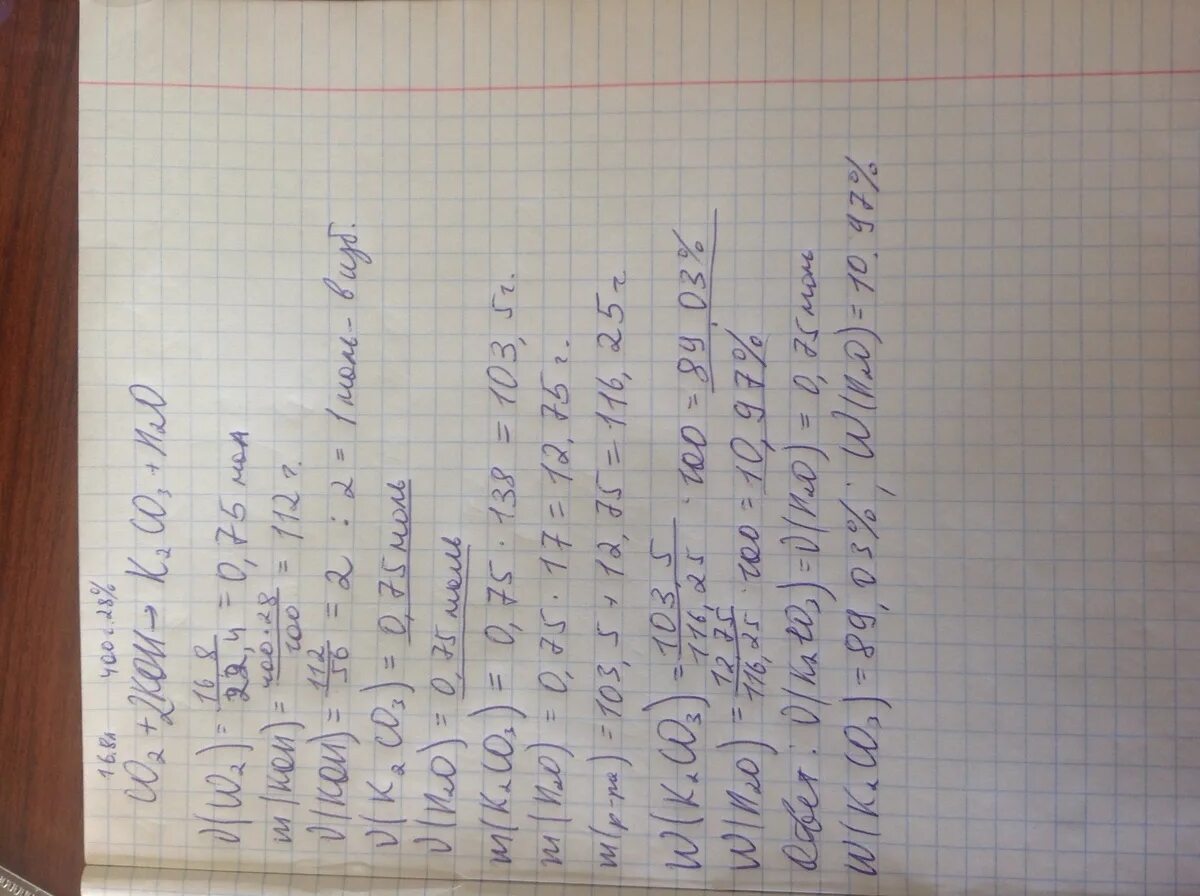 16,8л 400 г. 28%
CO₂ + 2KOH → K₂CO₃ + H₂O
ν(CO₂) = 16,8/22,4 = 0,75 мол
m(KOH) = 400·28/100 = 112 г.
ν(KOH) = 112/56 = 2 : 2 = 1 моль – в изб.
ν(K₂CO₃) = 0,75 моль
ν(H₂O) = 0,75 моль
m(K₂CO₃) = 0,75 · 138 = 103,5 г.
m(H₂O) = 0,75 · 17 = 12,75 г.
m(р-ра) = 103,5 + 12,75 = 116,25 г
W(K₂CO₃) = 103,5/116,25 · 100 = 89,03%
W(H₂O) = 12,75/116,25 · 100 = 10,97%
Ответ: ν(K₂CO₃) = ν(H₂O) = 0,75 моль
W(K₂CO₃) = 89,03%; W(H₂O) = 10.97%